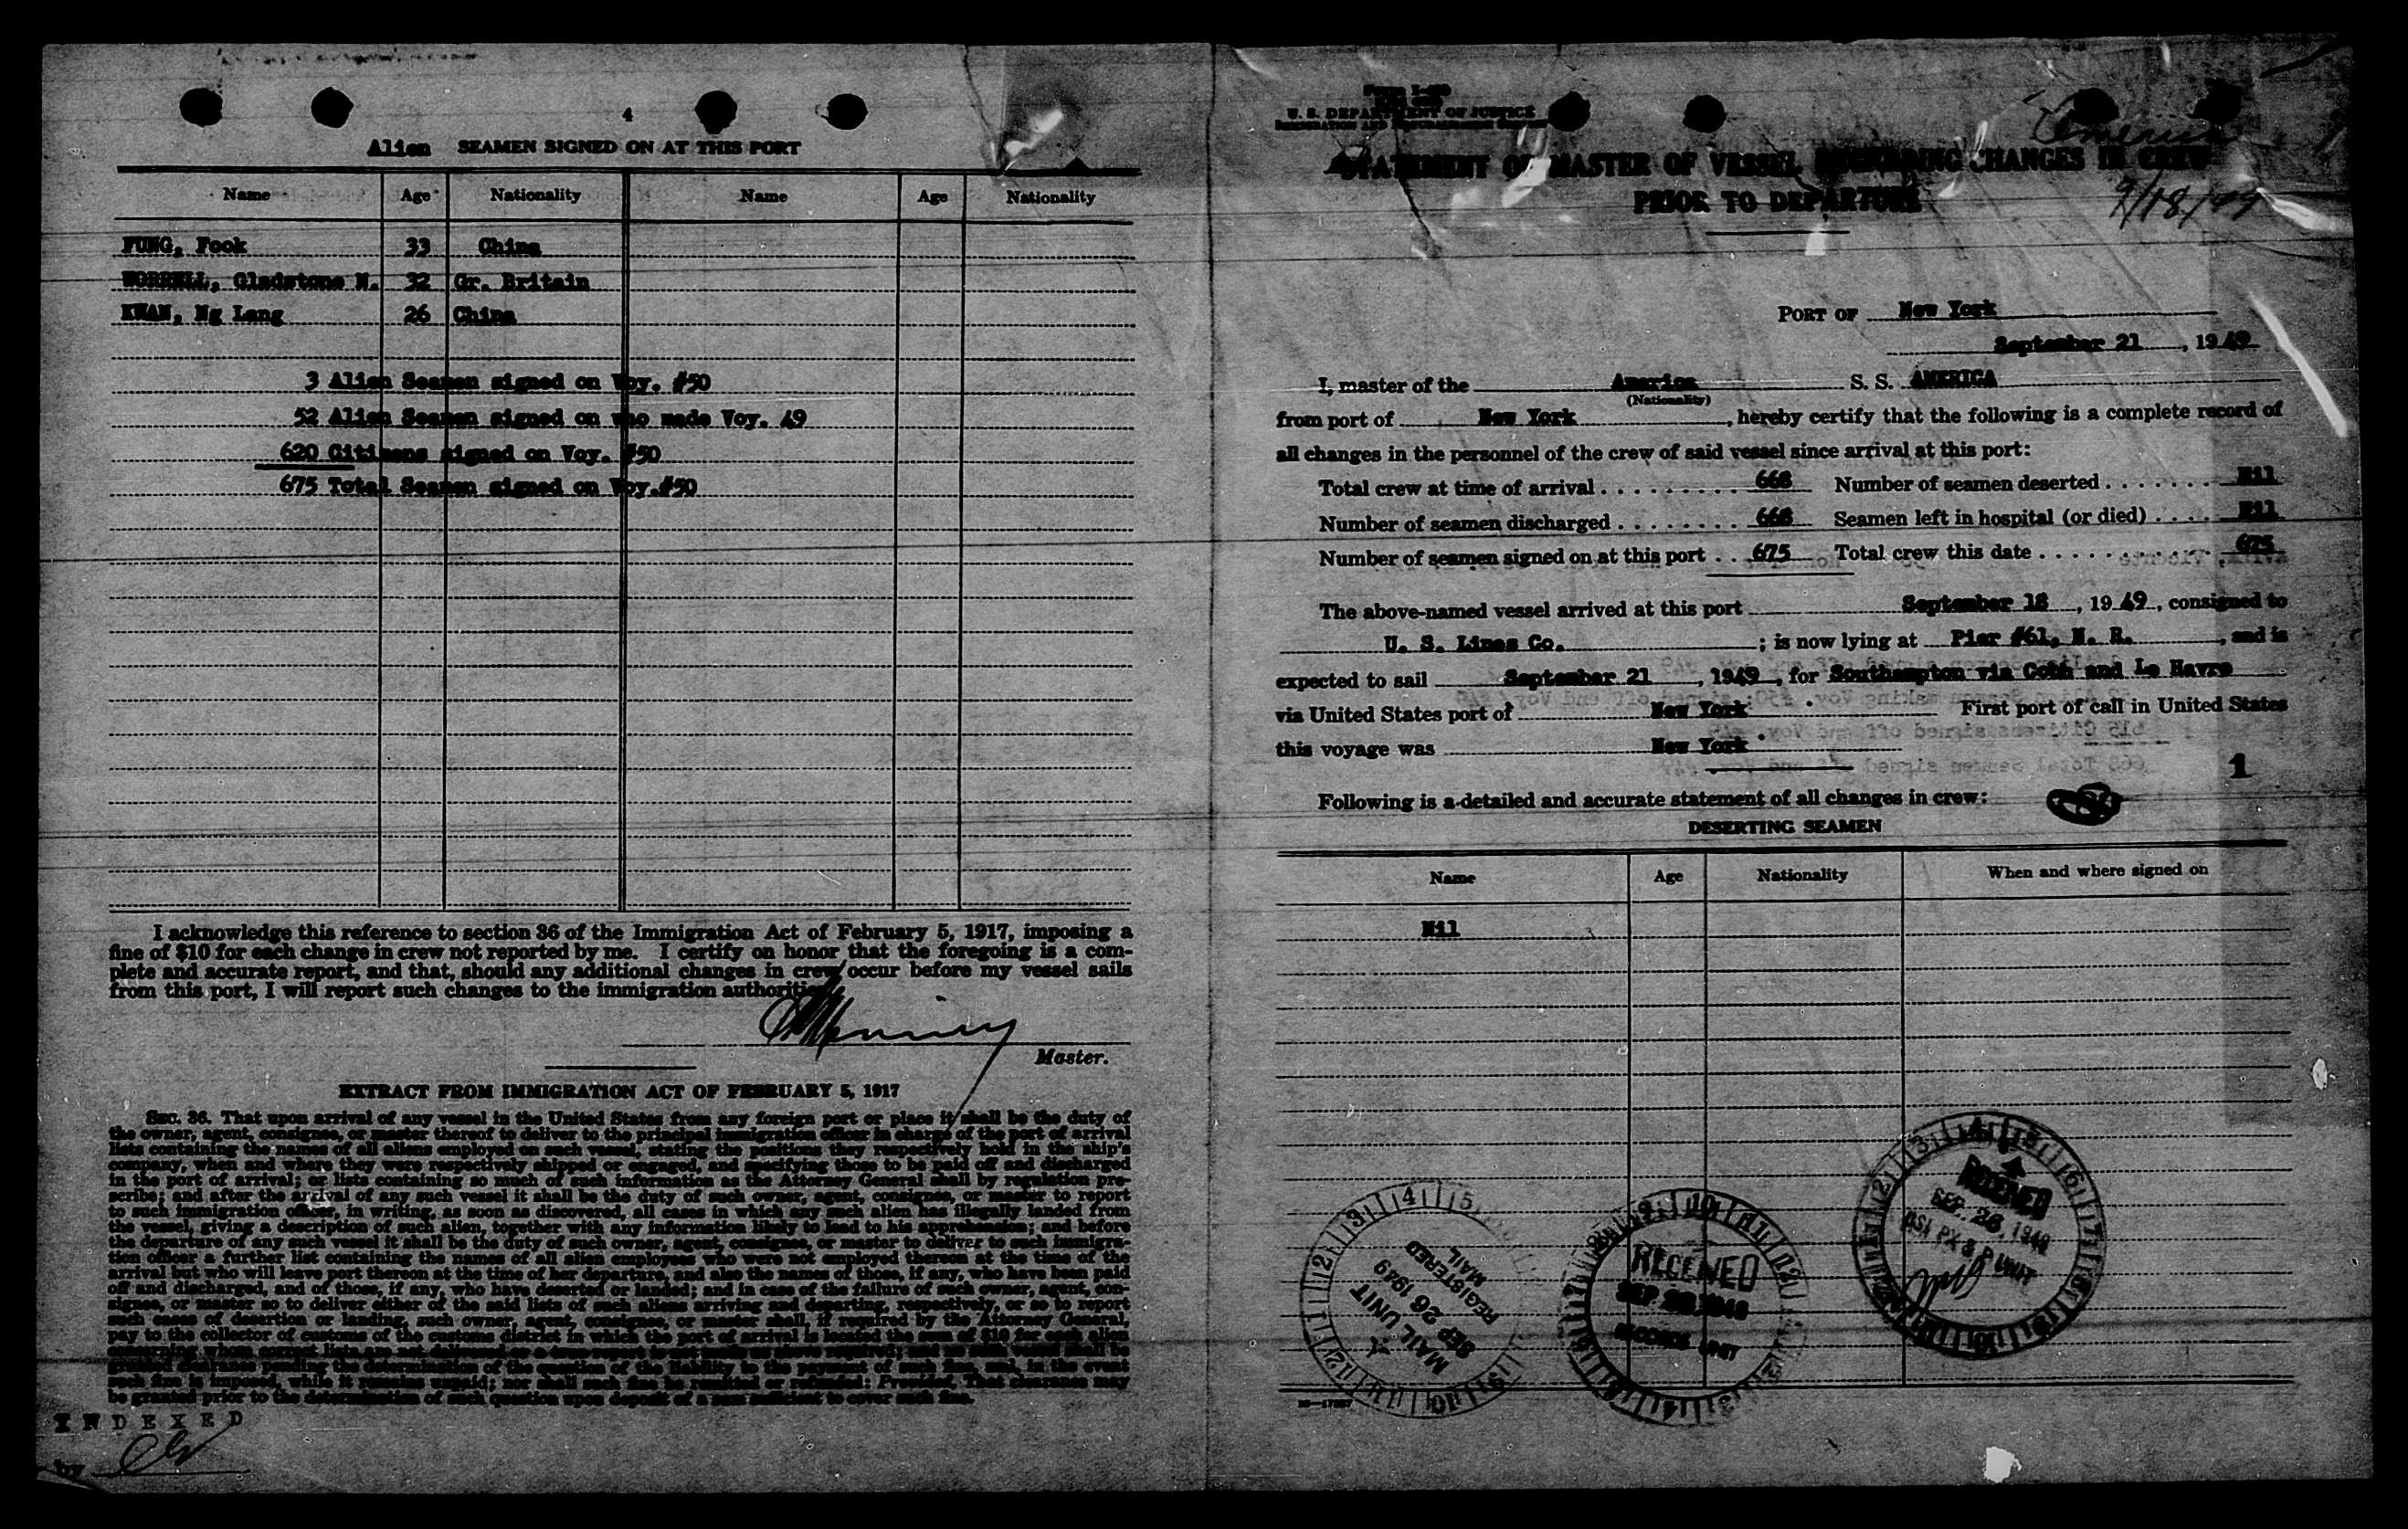 4
Alien SEAMEN SIGNED ON AT THIS PORT
Name Age Nationality Name Age Nationality
FUNG, Fook 33 China
WORRELL, Gladstone N. 32 Gr. Britain
KWAN, Ng Lang 26 China
3 Alien Seamen signed on Voy. #50
52 Alien Seamen signed on who made Voy. 49
620 Citizens signed on Voy. #50
675 Total Seamen signed on Voy.#50
I acknowledge this reference to section 36 of the Immigration Act of February 5, 1917, imposing a
fine of $10 for each change in crew not reported by me. I certify on honor that the foregoing is a com-
plete and accurate report, and that, should any additional changes in crew occur before my vessel sails
from this port, I will report such changes to the immigration authorities.
Master.
EXTRACT FROM IMMIGRATION ACT OF FEBRUARY 5, 1917
SEC. 36. That upon arrival of any vessel in the United States from any foreign port or place it shall be the duty of
the owner, agent, consignee, or master thereof to deliver to the principal immigration officer in charge of the port of arrival
lists containing the names of all aliens employed on such vessel, stating the positions they respectively hold in the ship's
company, when and where they were respectively shipped or engaged, and specifying those to be paid off and discharged
in the port of arrival; or lists containing so much of such information as the Attorney General shall by regulation pre-
scribe; and after the arrival of any such vessel it shall be the duty of such owner, agent, consignee, or master to report
to such immigration officer, in writing, as soon as discovered, all cases in which any such alien has illegally landed from
the vessel, giving a description of such alien, together with any information likely to lead to his apprehension; and before
the departure of any such vessel it shall be the duty of such owner, agent, consignee, or master to deliver to such immigra-
tion officer a further list containing the names of all alien employees who were not employed thereon at the time of the
arrival but who will leave port thereon at the time of her departure, and also the names of those, if any, who have been paid
off and discharged, and of those, if any, who have deserted or landed; and in case of the failure of such owner, agent, con-
signee, or master so to deliver either of the said lists of such aliens arriving and departing, respectively, or so to report
such cases of desertion or landing, such owner, agent, consignee, or master shall, if required by the Attorney General,
pay to the collector of customs of the customs district in which the port of arrival is located the sum of $10 for each alien
concerning whom correct lists are not delivered or a true report is not made as above required; and no such vessel shall be
granted clearance pending the determination of the question of the liability to the payment of such fine, and, in the event
such fine is imposed, while it remains unpaid; nor shall such fine be remitted or refunded: Provided, That clearance may
be granted prior to the determination of such question upon deposit of a sum sufficient to cover such fine.
INDEXED
by
U. S. DEPARTMENT OF JUSTICE
IMMIGRATION AND NATURALIZATION SERVICE
America
STATEMENT OF MASTER OF VESSEL REGARDING CHANGES IN CREW
PRIOR TO DEPARTURE
9/18/49
PORT OF New York
September 21, 1949
I, master of the America S. S. AMERICA
(Nationality)
from port of New York, hereby certify that the following is a complete record of
all changes in the personnel of the crew of said vessel since arrival at this port:
Total crew at time of arrival 668 Number of seamen deserted Nil
Number of seamen discharged 668 Seamen left in hospital (or died) Nil
Number of seamen signed on at this port 675 Total crew this date 675
The above-named vessel arrived at this port September 18, 1949, consigned to
U. S. Lines Co.; is now lying at Pier #61, N. R., and is
expected to sail September 21, 1949, for Southampton via Cobh and Le Havre
via United States port of New York First port of call in United States
this voyage was New York
1
Following is a detailed and accurate statement of all changes in crew:
DESERTING SEAMEN
Name Age Nationality When and where signed on
Nil
MAIL UNIT
SEP 26 1949
REGISTERED
MAIL
RECEIVED
RECORDS UNIT
RECEIVED
SEP. 26, 1949